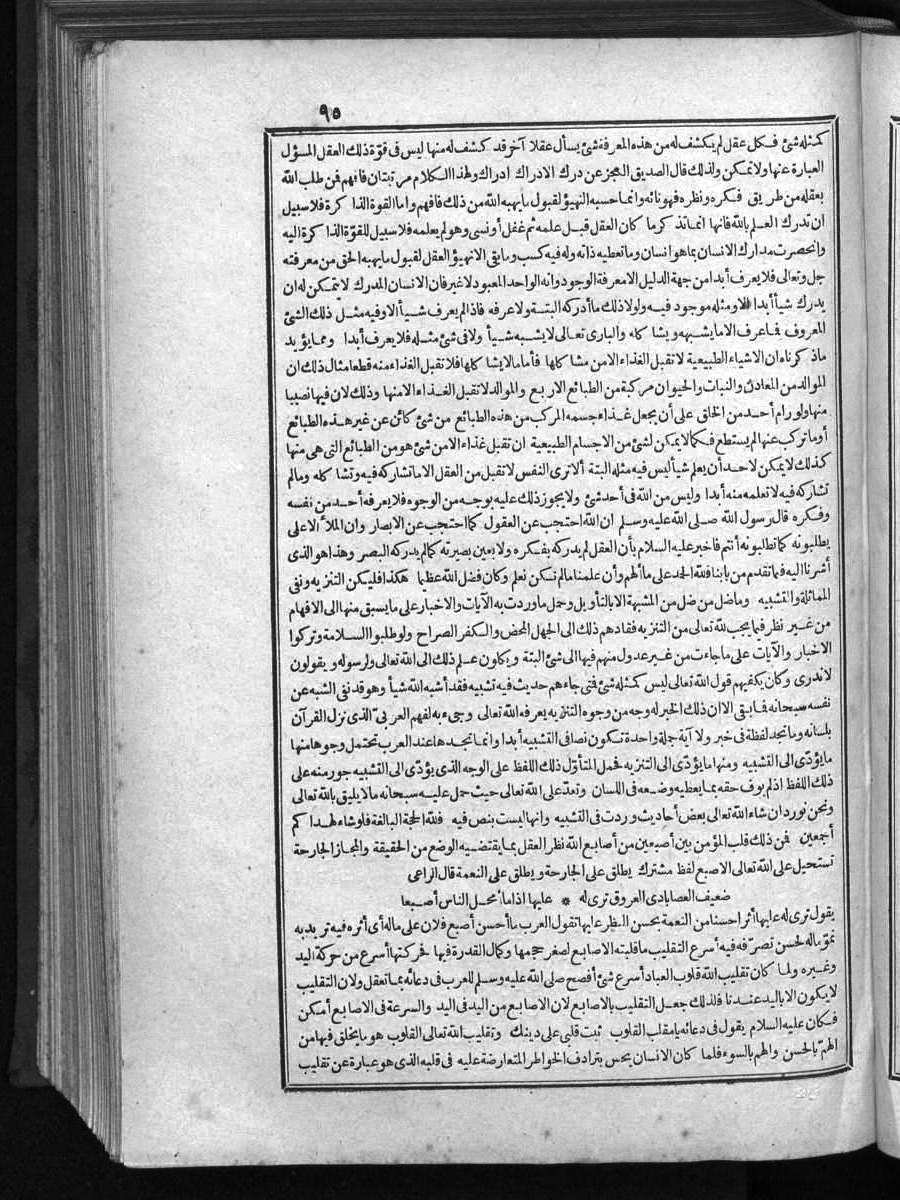 ٩٥
كمثله شئ فكل عقل لم يكشف له من هذه المعرفة شئ يسأل عقلا آخر قد كشف له منها ليس فى قوّة ذلك العقل المسؤل
العبارة عنها ولا تمكن ولذلك قال الصديق العجز عن درك الادراك ادراك ولهذا الكلام مرتبتان فافهم فمن طلب الله
بعقله من طريق فكره ونظره فهو تائه وانما حسبه التهيؤ لقبول ما يهبه الله من ذلك فافهم واما القوة الذاكرة فلا سبيل
ان تدرك العلم بالله فانها انما تذكر ما كان العقل قبل علمه ثم غفل أو نسى وهو لم يعلمه فلا سبيل للقوّة الذاكرة اليه
وانحصرت مدارك الانسان بما هو انسان وما تعطيه ذاته وله فيه كسب وما بقى الا تهيؤ العقل لقبول ما يهبه الحق من معرفته
جل وتعالى فلا يعرف أبدا من جهة الدليل الا معرفة الوجود وانه الواحد المعبود لا غير فان الانسان المدرك لا يتمكن له ان
يدرك شيأ أبدا الا ومثله موجود فيه ولولا ذلك ما أدركه البتة ولا عرفه فاذا لم يعرف شيأ الا وفيه مثل ذلك الشئ
المعروف فما عرف الا ما يشبهه ويشاكله والبارى تعالى لا يشبه شيأ ولا فى شئ مثله فلا يعرف أبدا ومما يؤيد
ما ذكرناه ان الاشياء الطبيعية لا تقبل الغذاء الا من مشاكلها فأما ما لا يشاكلها فلا تقبل الغذاء منه قطعا مثال ذلك ان
الموالد من المعادن والنبات والحيوان مركبة من الطبائع الاربع والموالد لا تقبل الغذاء الا منها وذلك لان فيها نصيبا
منها ولو رام أحد من الخلق على أن يجعل غذاء جسمه المركب من هذه الطبائع من شئ كائن عن غير هذه الطبائع
أو ما تركب عنها لم يستطع فكما لا يمكن لشئ من الاجسام الطبيعية ان تقبل غذاء الا من شئ هو من الطبائع التى هى منها
كذلك لا يمكن لاحد أن يعلم شيأ ليس فيه مثله البتة ألا ترى النفس لا تقبل من العقل الا ما تشاركه فيه وتشاكله وما لم
تشاركه فيه لا تعلمه منه أبدا وليس من الله فى أحد شئ ولا يجوز ذلك عليه بوجه من الوجوه فلا يعرفه أحد من نفسه
وفكره قال رسول الله صلى الله عليه وسلم ان الله احتجب عن العقول كما احتجب عن الابصار وان الملأ الاعلى
يطلبونه كما تطلبونه أنتم فاخبر عليه السلام بأن العقل لم يدركه بفكره ولا بعين بصيرته كما لم يدركه البصر وهذا هو الذى
أشرنا اليه فيما تقدم من بابنا فلله الحمد على ما ألهم وأن علمنا ما لم نكن نعلم وكان فضل الله عظيما هكذا فليكن التنزيه ونفى
المماثلة والتشبيه وما ضل من ضل من المشبهة الا بالتأويل وحمل ما وردت به الآيات والاخبار على ما يسبق منها الى الافهام
من غير نظر فيما يجب لله تعالى من التنزيه فقادهم ذلك الى الجهل المحض والكفر الصراح ولو طلبوا السلامة وتركوا
الاخبار والآيات على ما جاءت من غير عدول منهم فيها الى شئ البتة ويكلون علم ذلك الى الله تعالى ولرسوله ويقولون
لا ندرى وكان يكفيهم قول الله تعالى ليس كمثله شئ فمتى جاءهم حديث فيه تشبيه فقد أشبه الله شيأ وهو قد نفى الشبه عن
نفسه سبحانه فما بقى الا ان ذلك الخبر له وجه من وجوه التنزيه يعرفه الله تعالى وجىء به لفهم العربىّ الذى نزل القرآن
بلسانه وما تجد لفظة فى خبر ولا آية جملة واحدة تكون نصا فى التشبيه أبدا وانما تجدها عند العرب تحتمل وجوها منها
ما يؤدّى الى التشبيه ومنها ما يؤدّى الى التنزيه فحمل المتأوّل ذلك اللفظ على الوجه الذى يؤدّى الى التشبيه جور منه على
ذلك اللفظ اذ لم يوف حقه بما يعطيه وضعه فى اللسان وتعدّ على الله تعالى حيث حمل عليه سبحانه ما لا يليق بالله تعالى
ونحن نورد ان شاء الله تعالى بعض أحاديث وردت فى التشبيه وانها ليست بنص فيه فلله الحجة البالغة فلو شاء لهداكم
أجمعين فمن ذلك قلب المؤمن بين أصبعين من أصابع الله نظر العقل بما يقتضيه الوضع من الحقيقة والمجاز الجارحة
تستحيل على الله تعالى الاصبع لفظ مشترك يطلق على الجارحة ويطلق على النعمة قال الراعى
ضعيف العصا بادى العروق ترى له * عليها اذا ما أمحل الناس أصبعا
يقول ترى له عليها أثرا حسنا من النعمة بحسن النظر عليها تقول العرب ما أحسن أصبع فلان على ماله أى أثره فيه تريد به
نموّ ماله لحسن تصرّفه فيه أسرع التقليب ما قلبته الاصابع لصغر حجمها وكمال القدرة فيها فحركتها أسرع من حركة اليد
وغيره ولما كان تقليب الله قلوب العباد أسرع شئ أفصح صلى الله عليه وسلم للعرب فى دعائه بما تعقل ولان التقليب
لا يكون الا باليد عندنا فلذلك جعل التقليب بالاصابع لان الاصابع من اليد فى اليد والسرعة فى الاصابع أمكن
فكان عليه السلام يقول فى دعائه يا مقلب القلوب ثبت قلبى على دينك وتقليب الله تعالى القلوب هو ما يخلق فيها من
الهمّ بالحسن والهم بالسوء فلما كان الانسان يحس بترادف الخواطر المتعارضة عليه فى قلبه الذى هو عبارة عن تقليب